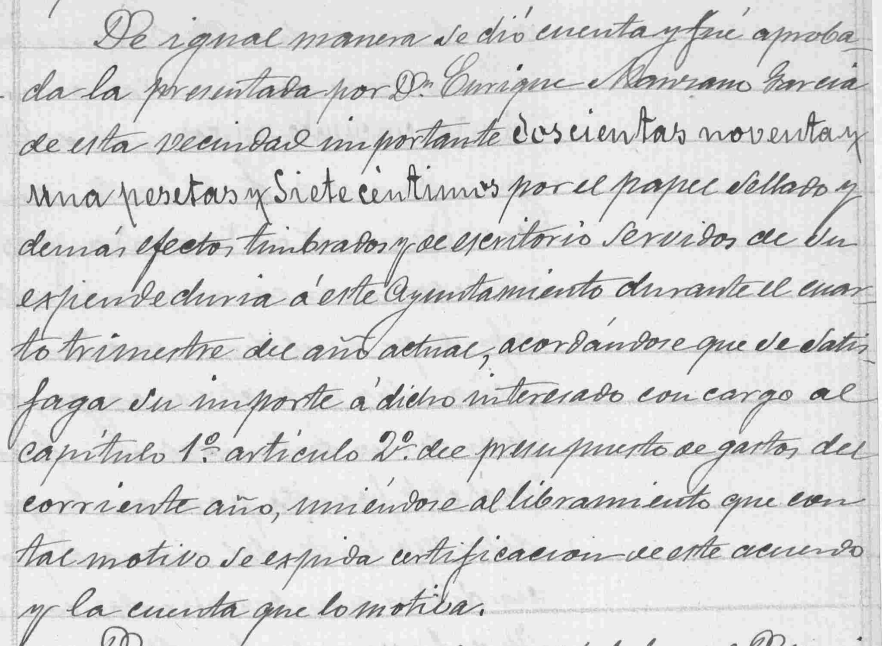 De igual manera se dió cuenta y fué aproba-
da la presentada por Dn. Enrique Manzano García
de esta vecindad importante doscientas noventa y
una pesetas y siete céntimos por el papel sellado y
demás efectos timbrados y de escritorio servidos de su
expendeduria á este Ayuntamiento durante el cuar-
to trimestre del año actual, acordándose que se satis-
faga su importe á dicho interesado con cargo al
capítulo 1º. artículo 2º. del presupuesto de gastos del
corriente año, uniéndose al libramiento que con
tal motivo se expida certificacion de este acuerdo
y la cuenta que lo motiva.